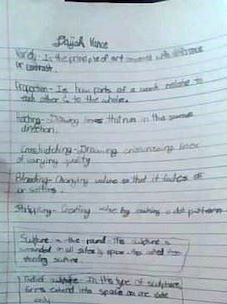 Dajjah Vance
Variety- Is the principle of art concerned with difference
or contrast.
Proportion- Is how parts of a work relate to
each other & to the whole.
Hatching- Drawing lines that run in the same
direction.
Crosshatching- Drawing crisscrossing lines
of varying
Blending- Changing value so that it fades
or
Stippling- Creating value by making a dot pattern
Sculpture in the round- This sculpture is
surrounded on all sides by space. Also called free
standing sculture.
Relief sculpture- In this type of sculpture,
forms extend into space on one side
only.